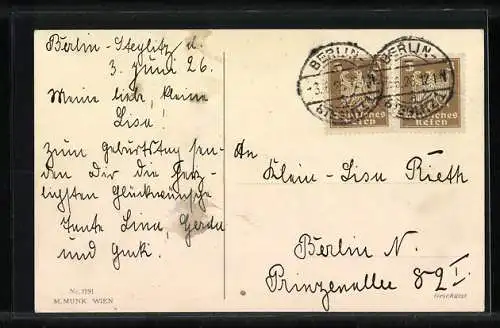 Berlin-Steglitz d.
3. Juni 26.
Meine liebe, kleine
Lisa!
Zum Geburtstag sen-
den Dir die herz-
lichsten Glückwünsche
Tante Lina, Gerda
und
An
Klein-Lisa Rieth
Berlin N.
Prinzenallee 82 I.
BERLIN-
STEGLITZ
BERLIN-
STEGLITZ
Deutsches
Reich
Deutsches
Reich
Nr. 1191
M. MUNK WIEN
Geschützt